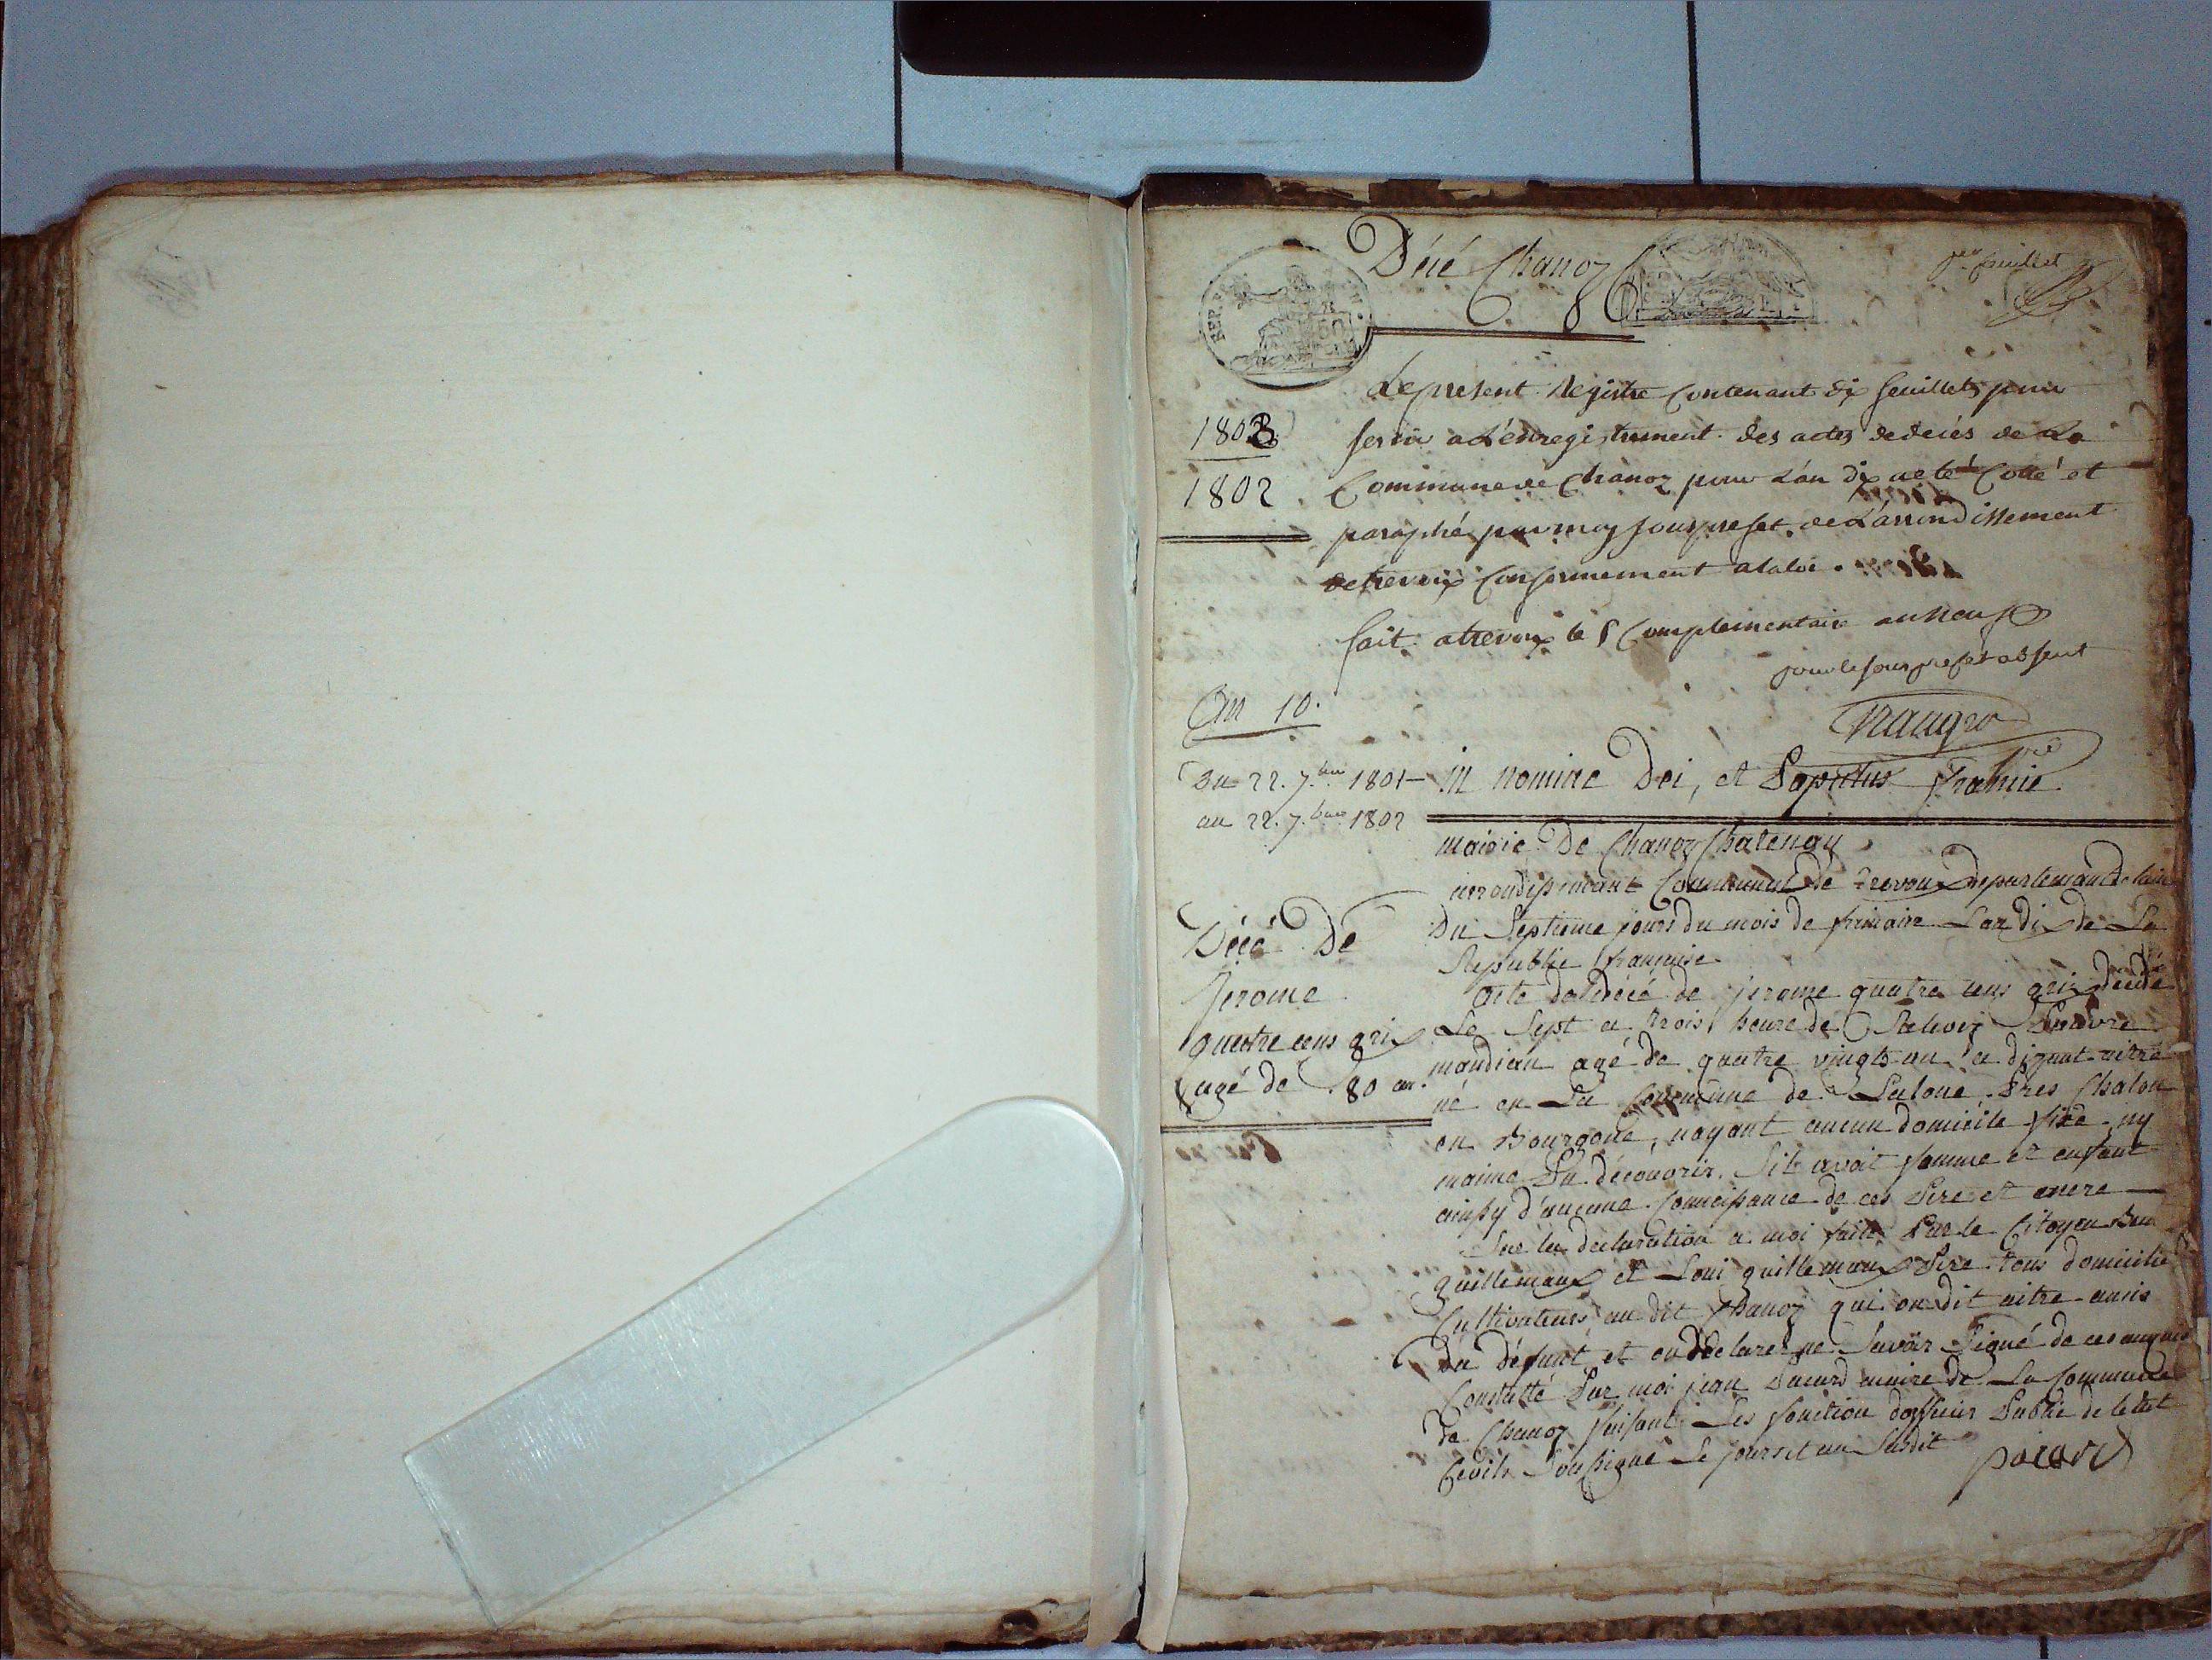 Décé Chanoz
1er feuillet
Le present Registre Contenant dix feuillets pour
servir a L'enregistrement des actes de decés de La
Commune de Chanoz pour L'an dix a eté Cotté et
paraphé par moy sous prefet de L'arrondissement
de trevoux Conformement a la loi.
fait a trevoux le 5 Complementaire an neuf
pour le sous prefet absent
1803
1802
An 10.
Du 22. 7.bre 1801 -
au 22. 7.bre 1802
in nomine Dei, et
mairie De Chanoz Chatenay
arrondissmant Communal de Trevoux departemant de lain
Du Septieme jours du mois de frimaire Lan dix de La
Republie francaise
Décé De
Jerome
quatre cens gris
agé de 80 an
Acte de décé de jerome quatre cens gris décédé
Le Sept a trois heure de Pauvre
mandian agé de quatre vingts an a dizant aitre
né en La Commune de près Chalon
en Bourgone, nayant aucun domicile fixe ny
maime Pu découvrir Sil avait famme et enfant
ainsy d'aucune Connaissance de ces Pere et mere
Sur la declaration a moi faite Par le Citoyen
guillemaux et Loui guillemaux Pere tous domicilié
Cultivateurs au dit Chanoz qui on dit aitre amis
du défunt et on déclare ne Savoir Signé de ce
Constatté Par moi jean Pacard maire de La Commune
de Chanoz faisant Les fonction dofficier Public de letat
Civile Soussigné Le jours et an Susdit
pacard